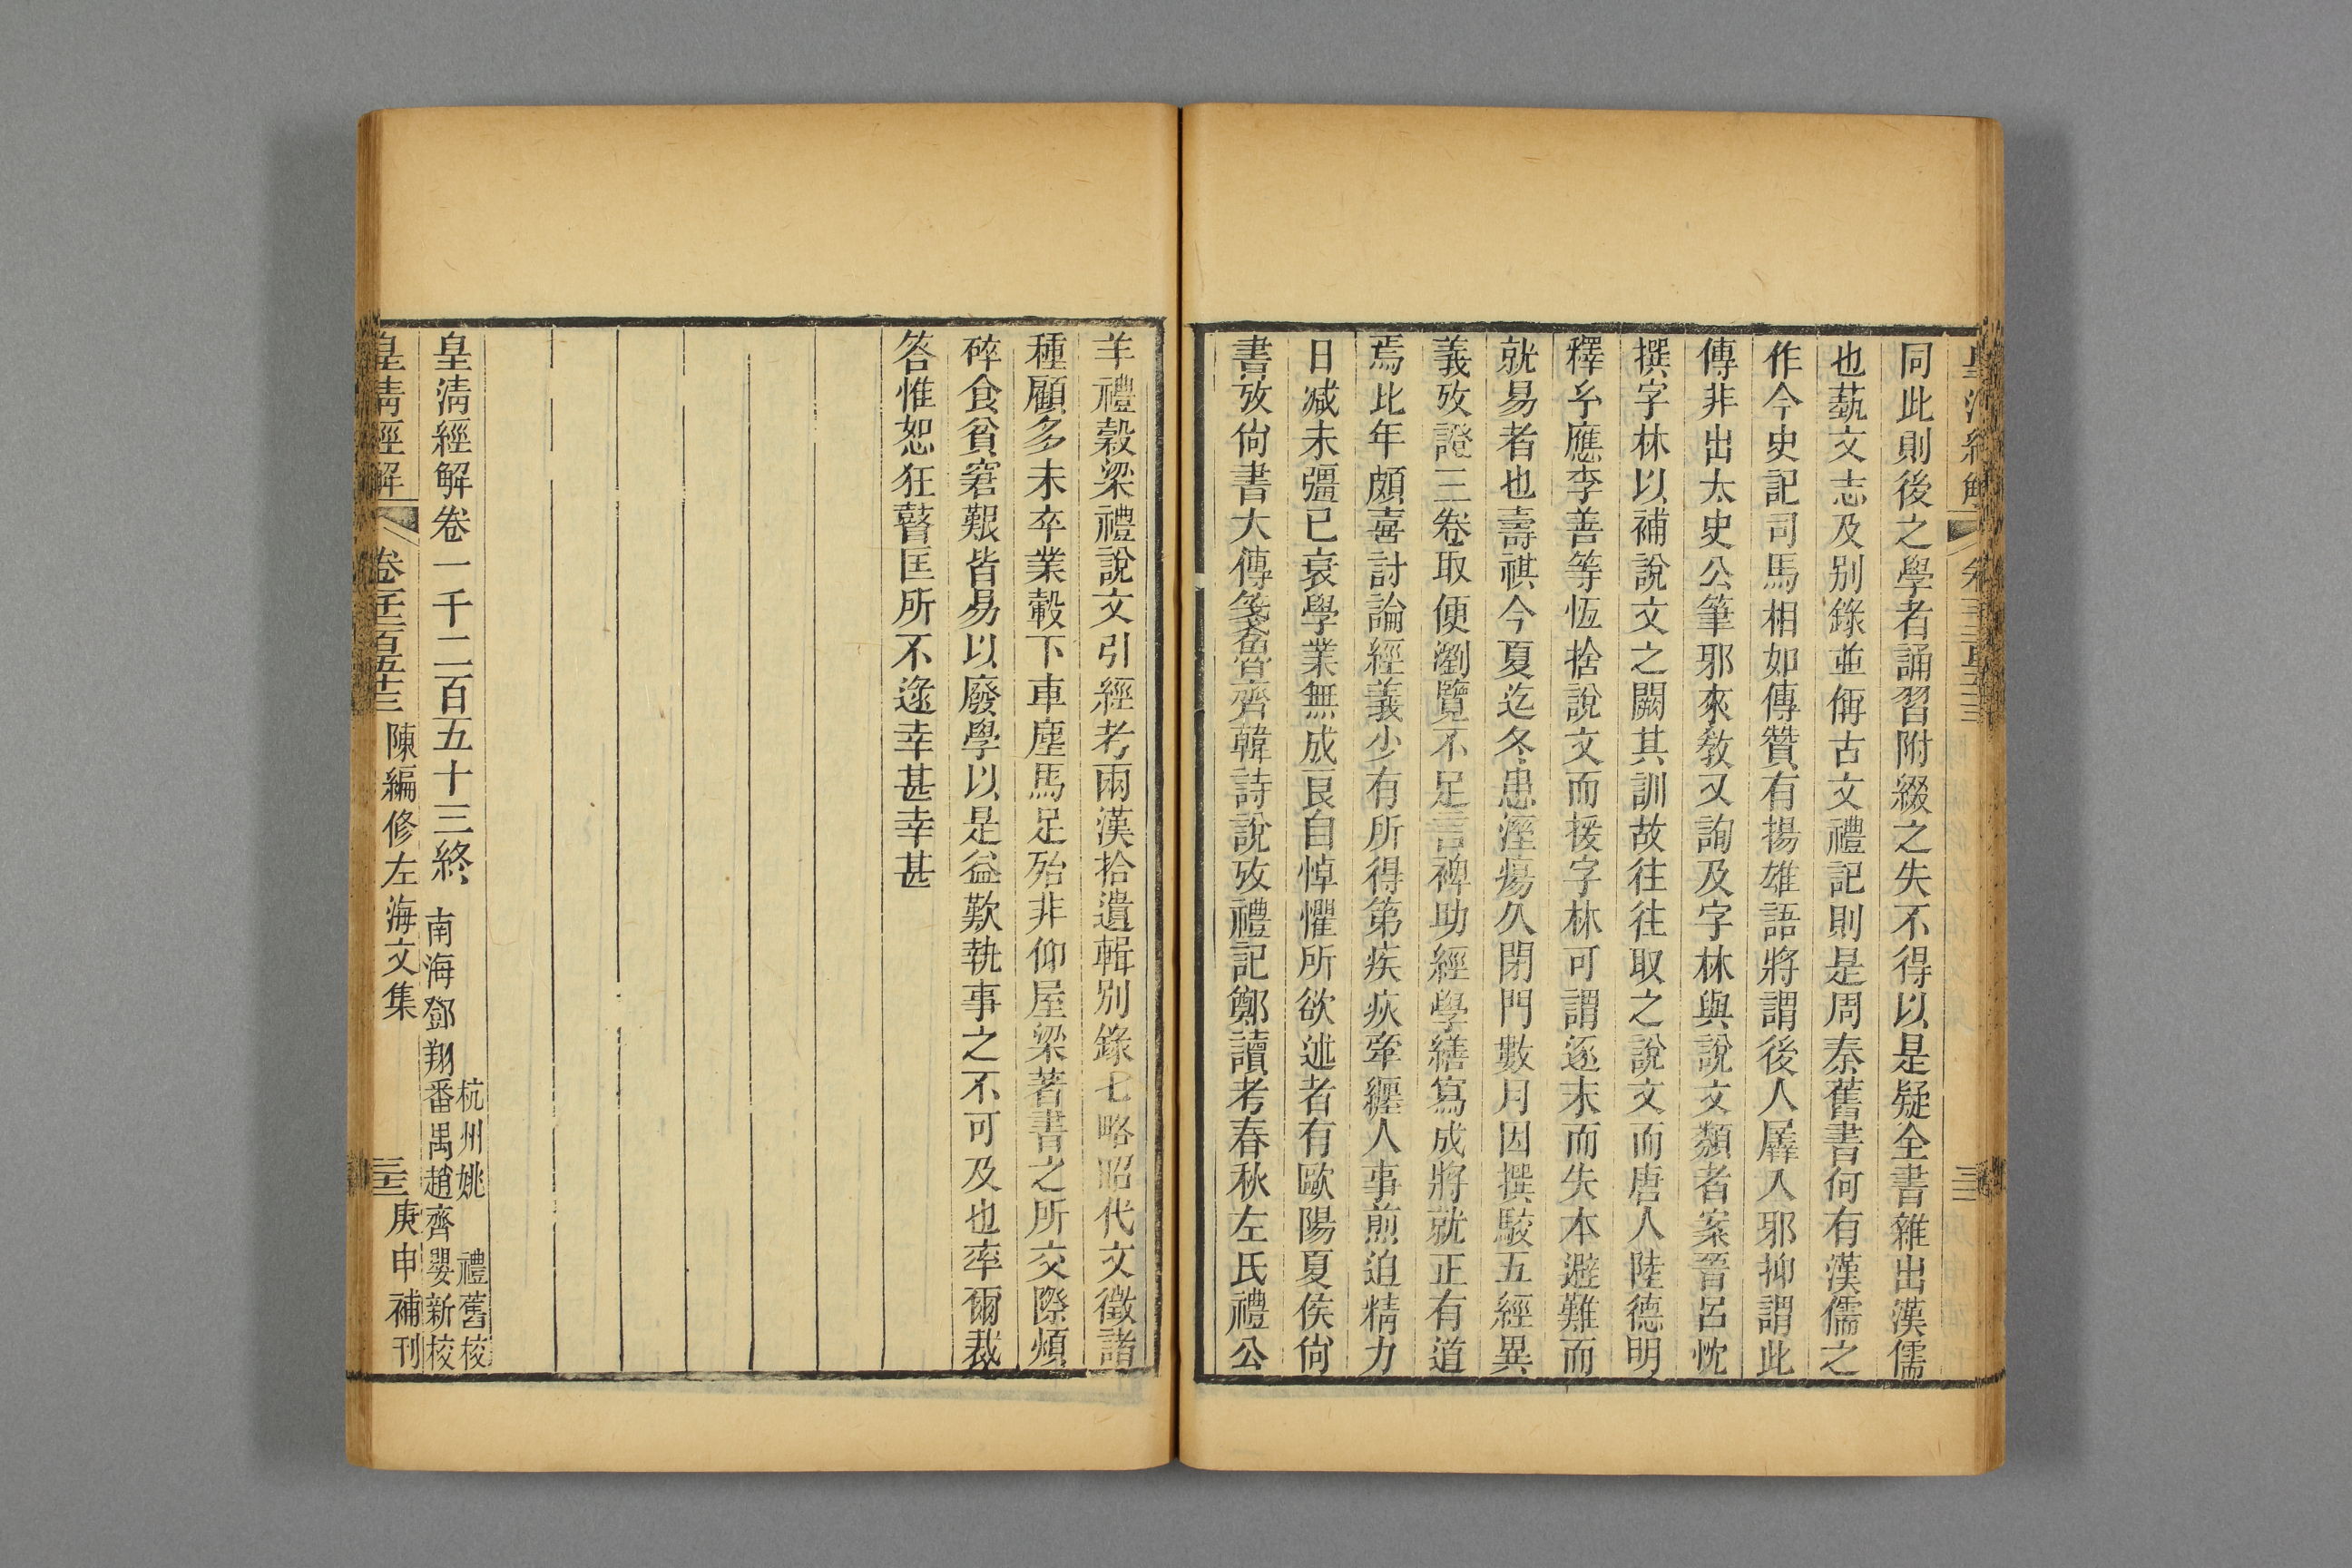 同此則後之學者誦習附綴之失不得以是疑全書雜出漢儒
也蓺文志及別錄並偁古文禮記則是周秦舊書何有漢儒之
作今史記司馬相如傳贊有揚雄語將謂後人羼入邪抑謂此
傳非出太史公筆邪來敎又詢及字林與說文纇者案晉呂忱
撰字林以補說文之闕其訓故往往取之說文而唐人陸德明
釋𤣥應李善等恆捨說文而援字林可謂逐末而失本避難而
就易者也壽祺今夏迄冬患溼瘍久閉門數月因撰駁五經異
義攷證三卷取便瀏覽不足言裨助經學繕寫成將就正有道
焉比年頗喜討論經義少有所得第疾疢牽纏人事煎迫精力
日減未彊已衰學業無成良自悼懼所欲述者有歐陽夏侯尙
書攷尙書大傳箋魯齊韓詩說攷禮記鄭讀考春秋左氏禮公
羊禮穀梁禮說文引經考兩漢拾遺輯別錄七略昭代文徵諸
種顧多未卒業轂下車塵馬足殆非仰屋梁著書之所交際煩
碎食貧窘艱皆易以廢學以是益歎執事之不可及也率爾裁
答惟恕狂瞽匡所不逮幸甚幸甚
皇淸經解卷一千二百五十三終
南海鄧翔
杭州姚禮舊校
番禺趙齊嬰新校
皇淸經解
卷一千二百五十三
陳編修左海文集
三十二
庚申補刊